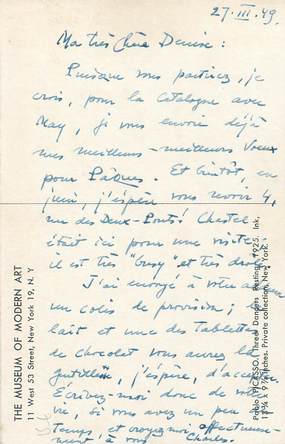 27.III.49.
Ma très Chère Denise :
Puisque vous partirez, je
crois, pour la Catalogne avec
May, je vous envoie déjà
mes meilleurs – meilleurs Voeux
pour Pâques. Et bientôt, en
juin, j'espère vous revoir 4,
rue des Deux-Ponts! Chastel
était ici pour une visite;
il est très "busy" et très drôle.
J'ai envoyé à votre
un colis de provision;
lait et une des tablettes
de chocolat vous aurez la
j'espère, d'
Ecrivez-moi donc de votre
vie, si vous avez un peu de
temps, et croyez-moi affectueuse-
ment à vous Charles
THE MUSEUM OF MODERN ART
11 West 53 Street, New York 19, N. Y.
Pablo PICASSO: Three Dancers Resting. 1925. Ink,
13¾ x 9⅞ inches. Private collection, New York.